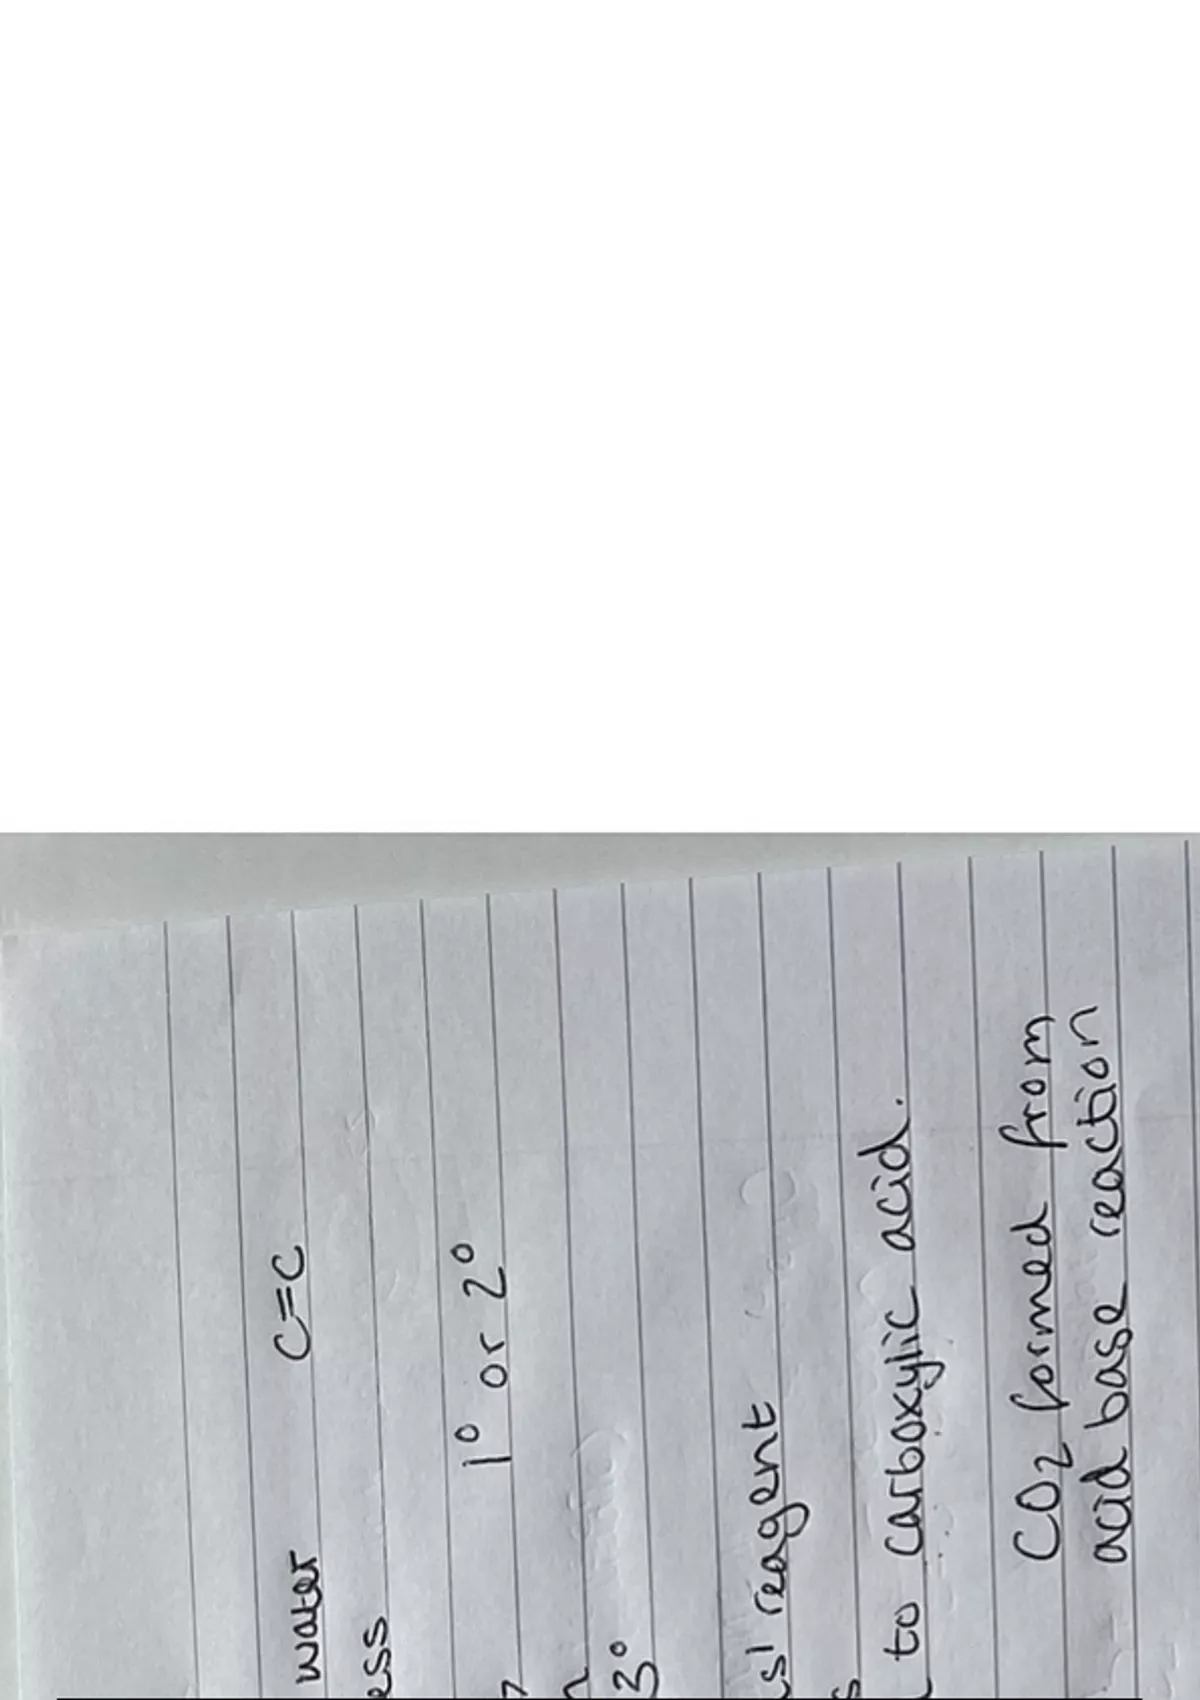 water C=C
ess
1° or 2°
3°
s' reagent
s
to carboxylic acid.
CO2 formed from
acid base reaction